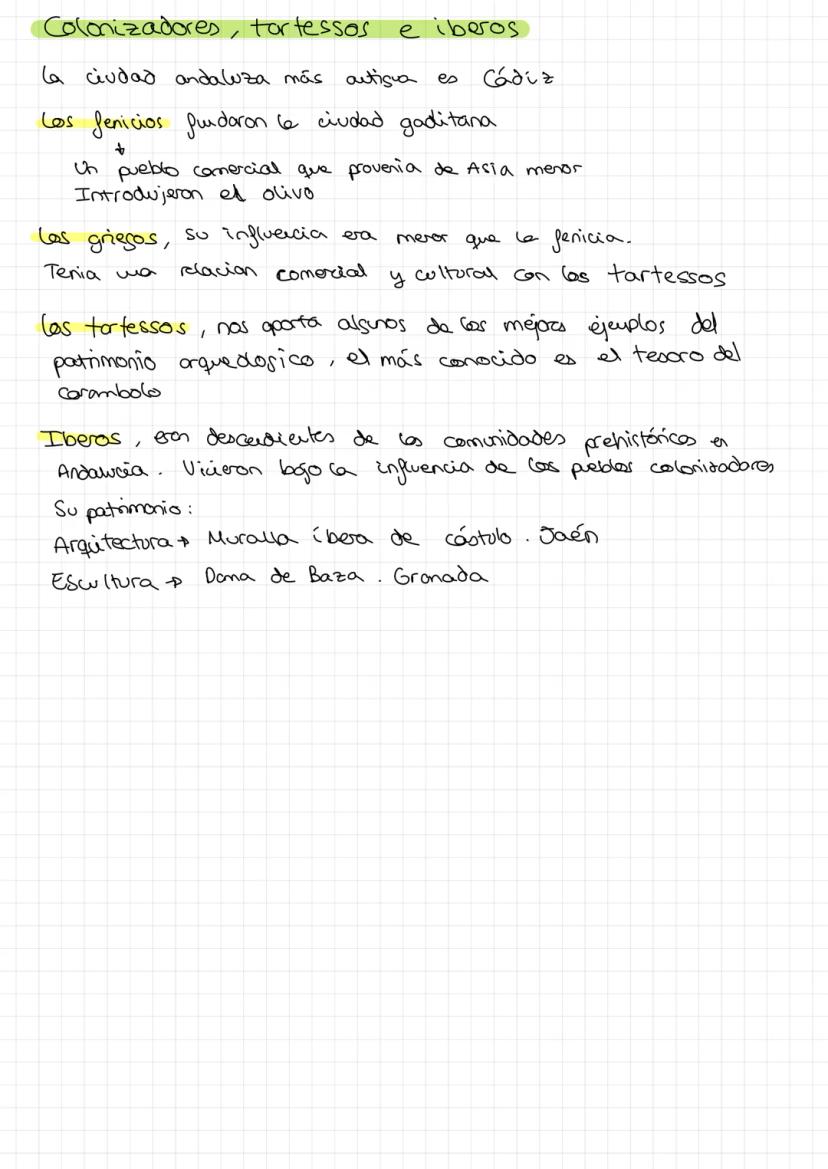 Colonizadores, tartessos e iberos
La ciudad andaluza más antigua es Cádiz
Los fenicios fundaron la ciudad gaditana
↓
Un pueblo comercial que provenia de Asia menor
Introdujeron el olivo
Los griegos, su influencia era menor que la fenicia.
Tenia una relacion comercial y cultural con los tartessos
Los tartessos, nos aporta algunos de los mejores ejemplos del
patrimonio arqueologico, el más conocido es el tesoro del
carambolo
Iberos, eran descendientes de las comunidades prehistóricas en
Andalucía. Vivieron bajo la influencia de los pueblos colonizadores
Su patrimonio:
Arquitectura → Muralla íbera de cástulo. Jaén
Escultura → Dama de Baza. Granada